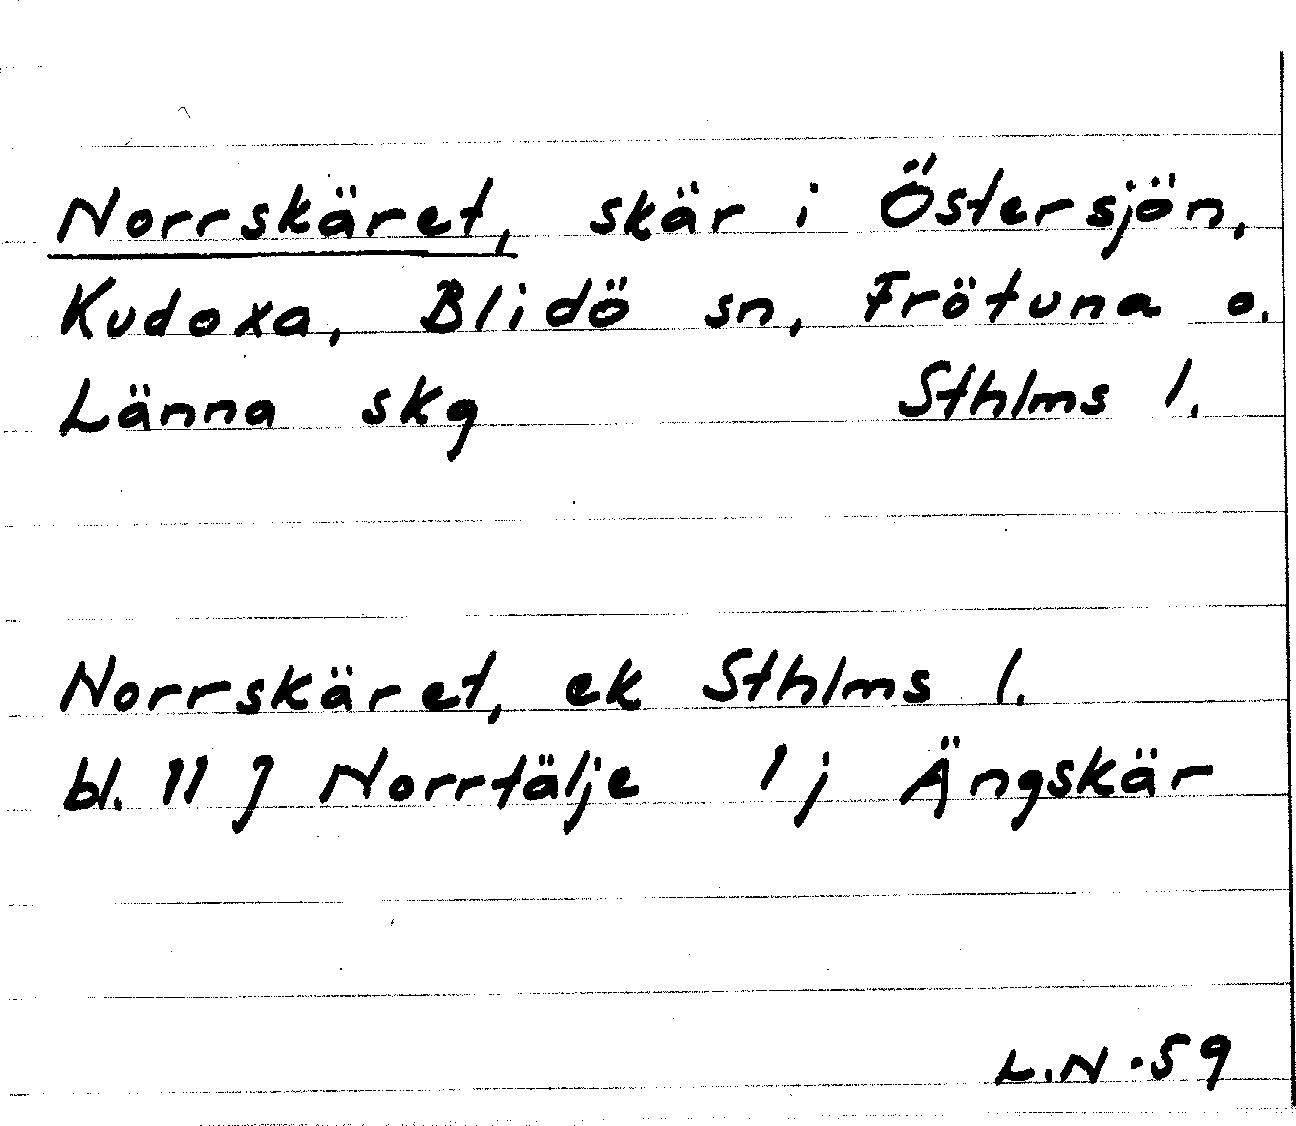 Norrskäret, skär i Östersjön,
Kudoxa, Blidö sn, Frötuna o.
Länna skg Sthlms l.
Norrskäret, ek Sthlms l.
bl. 11 J Norrtälje 1 j Ängskär
L.N. 59